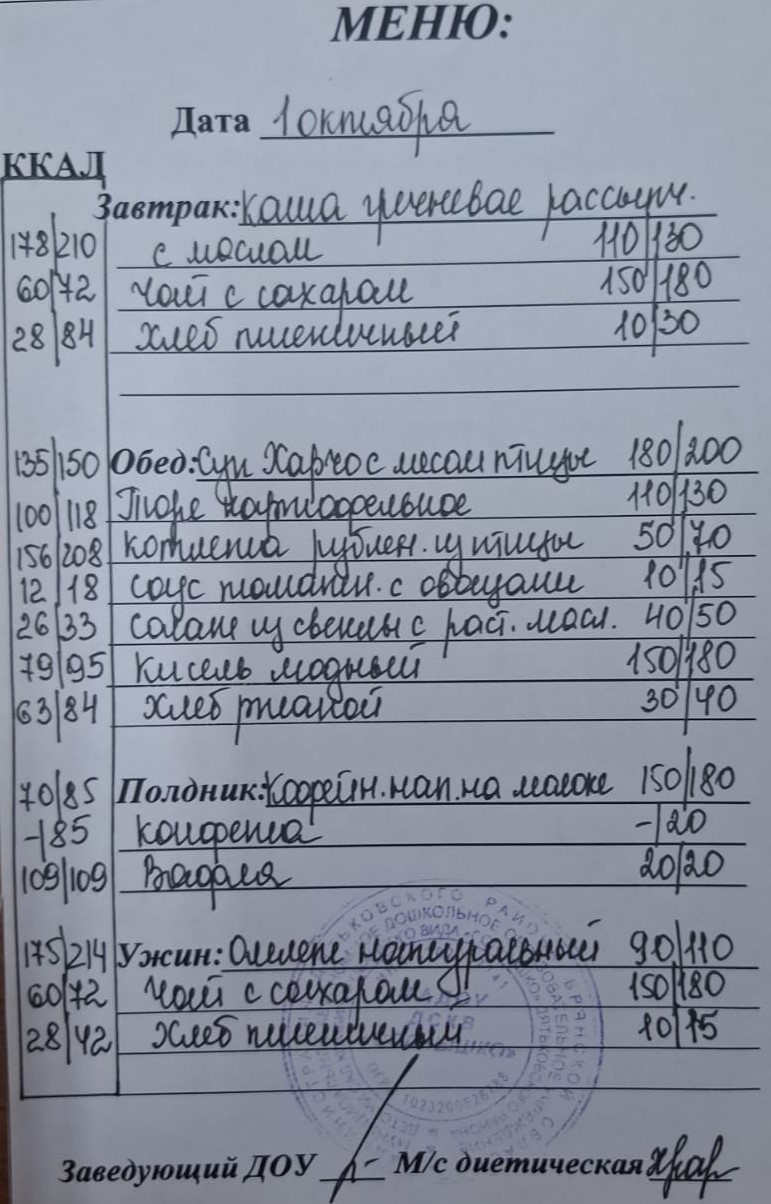 МЕНЮ:
Дата 1 октября
ККАЛ
Завтрак: Каша гречневая рассыпч.
178|210 с маслом 110|130
60|72 Чай с сахаром 150|180
28|84 Хлеб пшеничный 10|30
135|150 Обед: Суп Харчо с мясом птицы 180|200
100|118 Пюре картофельное 110|130
156|208 Котлета рублен. из птицы 50|70
12|18 Соус томатн. с овощами 10|15
26|33 Салат из свеклы с раст. масл. 40|50
79|95 Кисель модный 150|180
63|84 Хлеб ржаной 30|40
70|85 Полдник: Кофейн. нап. на молоке 150|180
-|85 Конфета -|20
109|109 Вафля 20|20
175|214 Ужин: Омлет натуральный 90|110
60|72 Чай с сахаром 150|180
28|42 Хлеб пшеничный 10|15
Заведующий ДОУ М/с диетическая